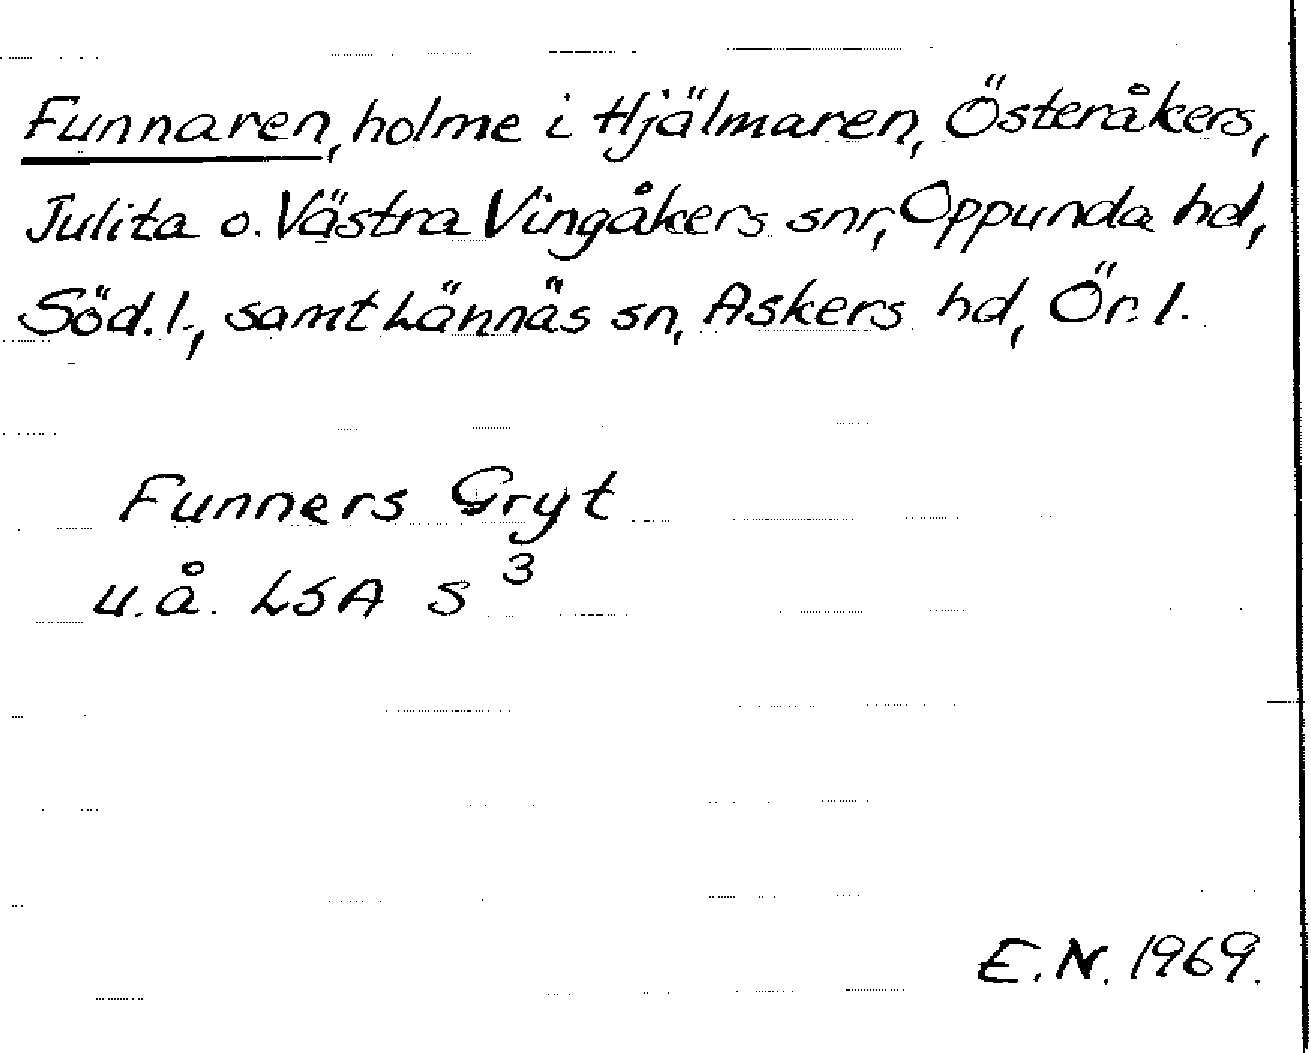 Funnaren, holme i Hjälmaren, Österåkers,
Julita o. Västra Vingåkers snr, Oppunda hd,
Söd. l., samt Lännäs sn, Askers hd, Ör. l.
Funners Gryt
u.å. LSA S 3
E.N. 1969.